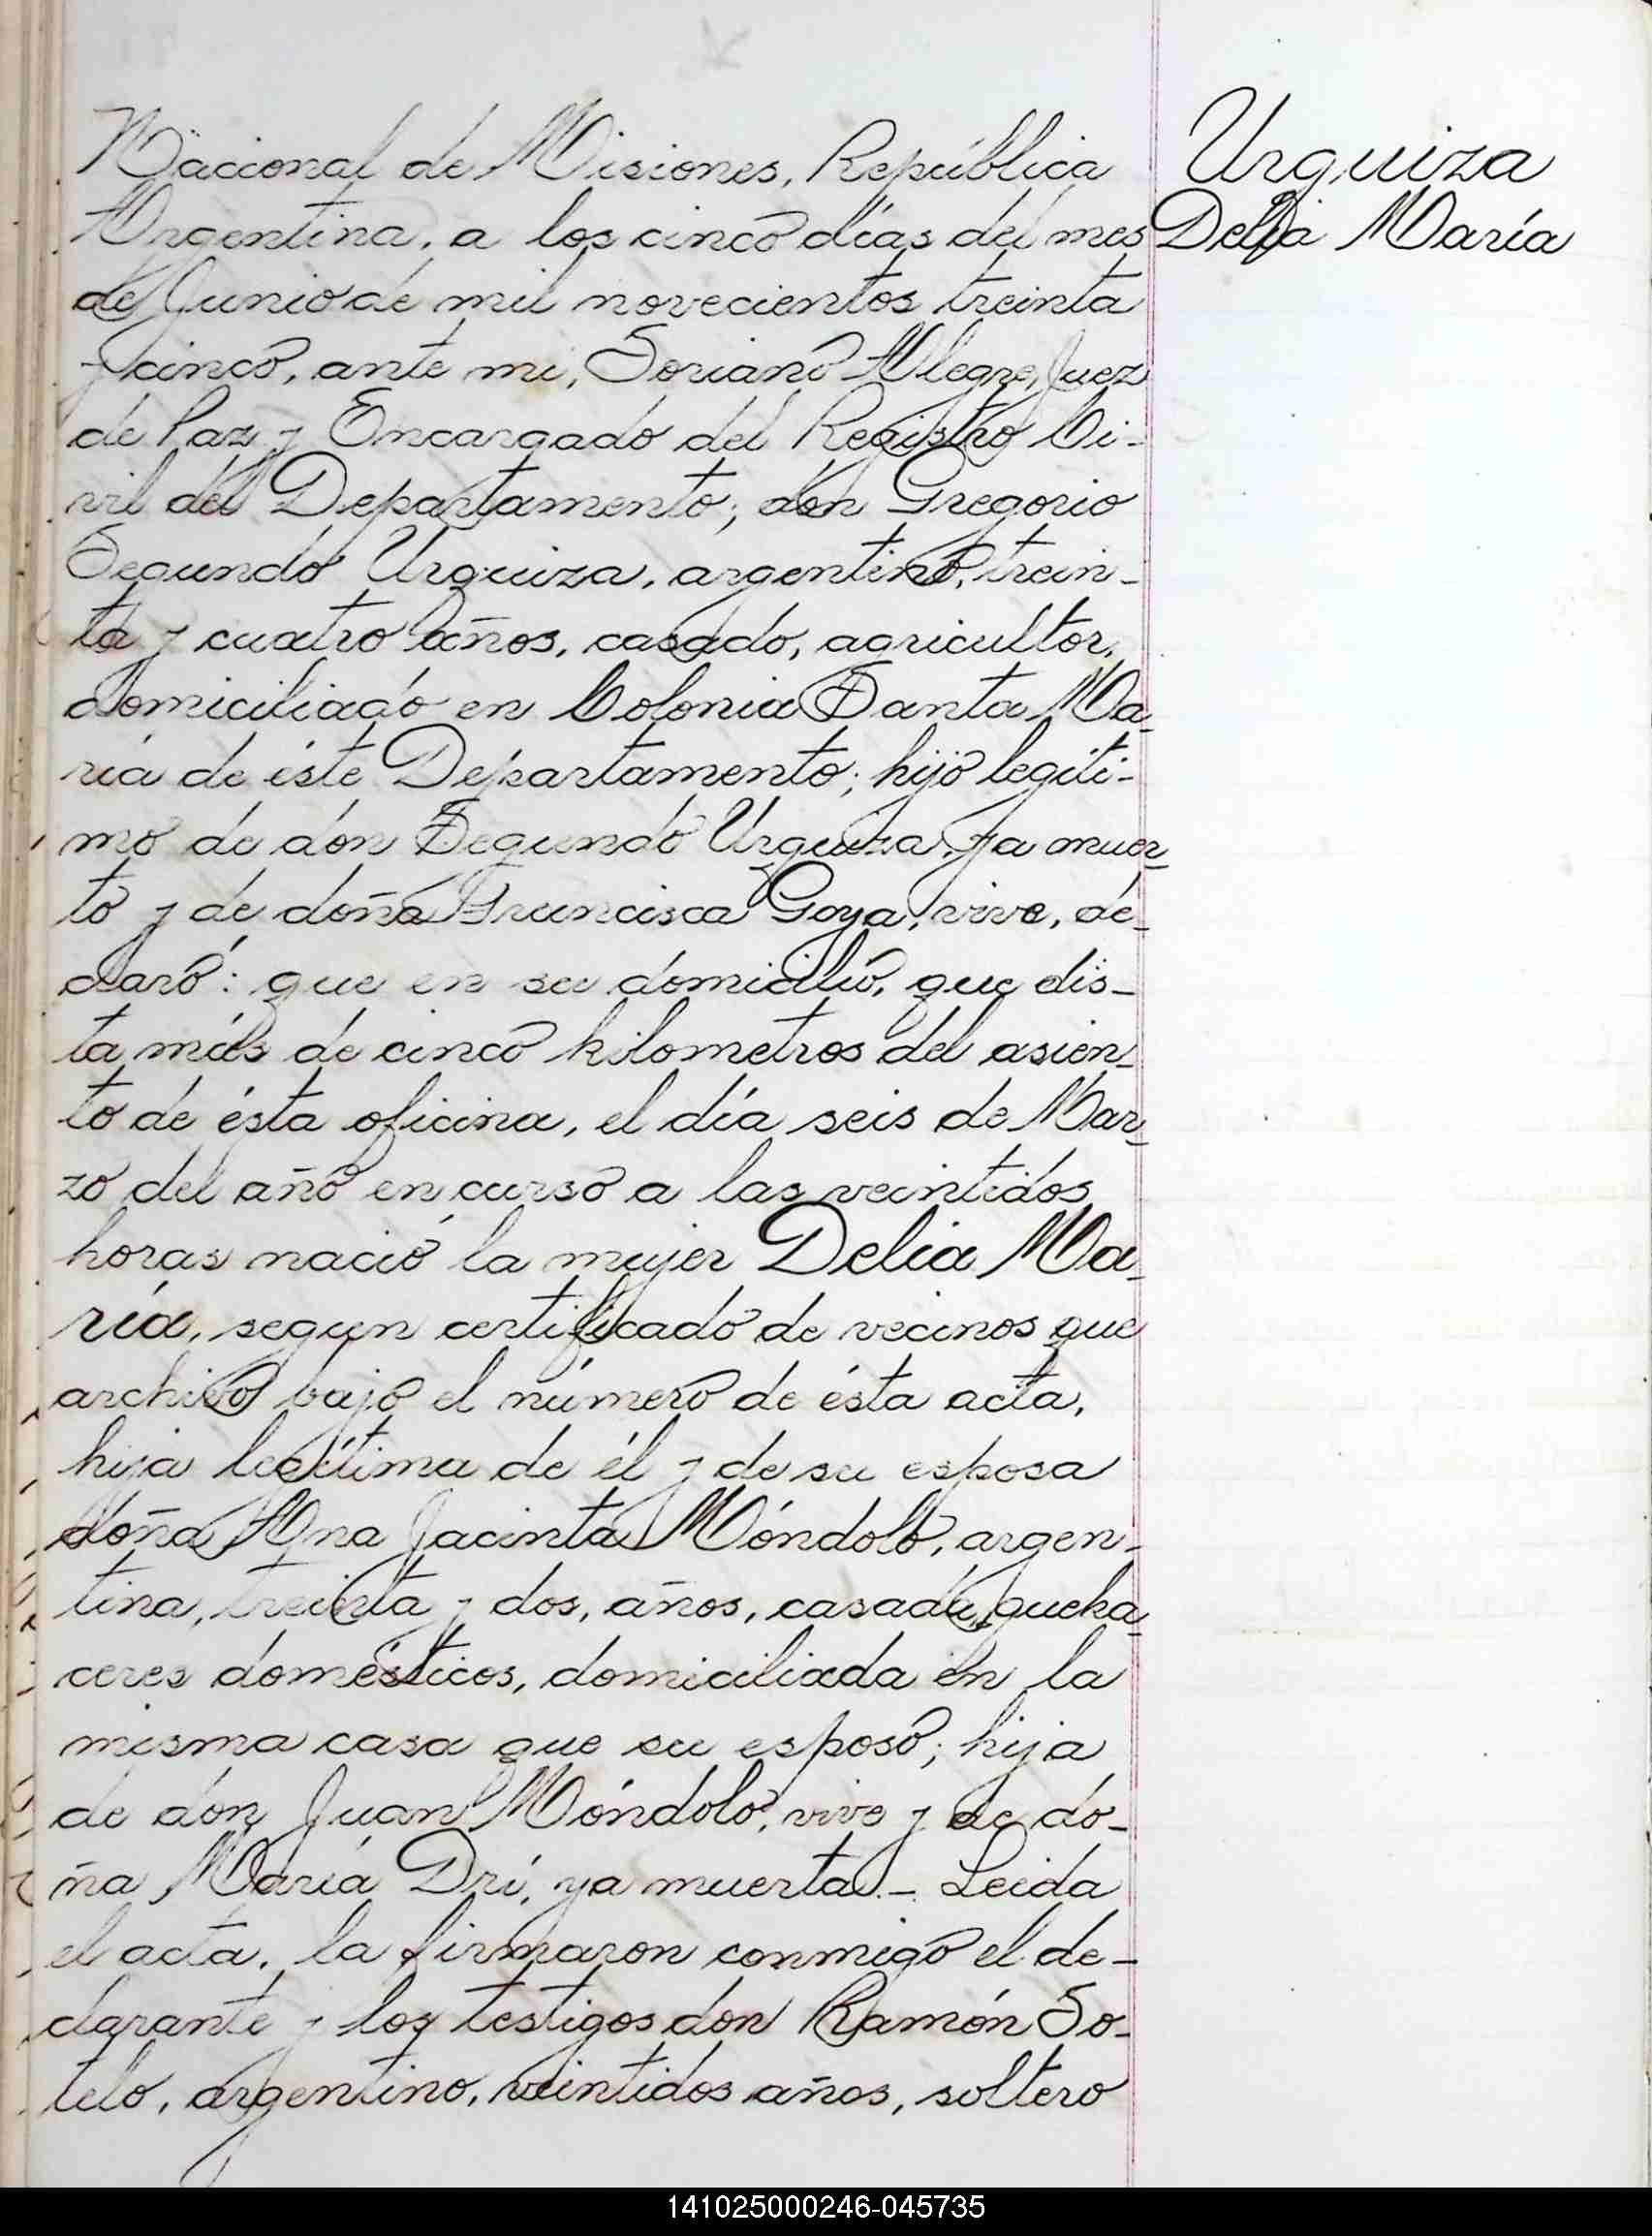 Nacional de Misiones, República
Argentina, a los cinco días del mes
de Junio de mil novecientos treinta
y cinco, ante mi, Soriano Alegre, Juez
de Paz y Encargado del Registro Ci-
vil del Departamento; don Gregorio
Segundo Urquiza, argentino, trein-
ta y cuatro años, casado, agricultor,
domiciliado en Colonia Santa Ma-
ría de éste Departamento; hijo legíti-
mo de don Segundo Urquiza, ya muer-
to y de doña Francisca Goya, vive, de-
claró: que en su domicilio, que dis-
ta más de cinco kilometros del asien-
to de ésta oficina, el día seis de Mar-
zo del año en curso a las veintidos
horas nació la mujer Delia Ma-
ría, segun certificado de vecinos que
archivo bajo el número de ésta acta,
hija legítima de él y de su esposa
doña Ana Jacinta Móndolo, argen-
tina, treinta y dos, años, casada, queha-
ceres domésticos, domiciliada en la
misma casa que su esposo; hija
de don Juan Móndolo, vive y de do-
ña María Dri, ya muerta.- Leida
el acta, la firmaron conmigo el de-
clarante y los testigos don Ramón So-
telo, argentino, veintidos años, soltero
Urquiza
Delia María
141025000246-045735